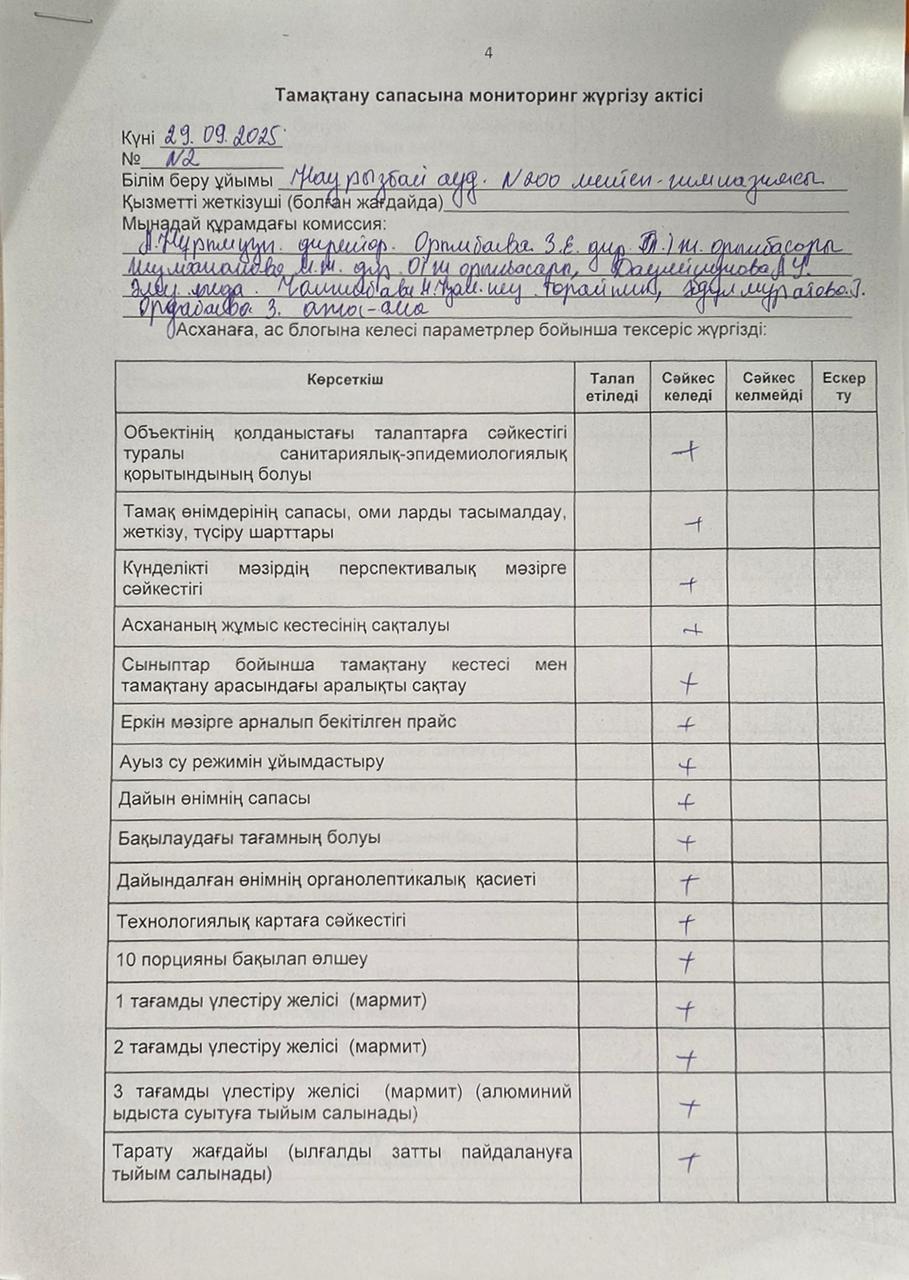 4
Тамақтану сапасына мониторинг жүргізу актісі
Күні 29.09.2025
№ N2
Білім беру ұйымы Наурызбай ауд. N200 мектеп-гимназиясы
Қызметті жеткізуші (болған жағдайда)
Мынадай құрамдағы комиссия:
директор. З.Е. дир. орынбасары
М.Ж. дир. ОІЖ орынбасары,
Әлеу.
З. ата-ана
Асханаға, ас блогына келесі параметрлер бойынша тексеріс жүргізді:
Көрсеткіш Талап етіледі Сәйкес келеді Сәйкес келмейді Ескер ту
Объектінің қолданыстағы талаптарға сәйкестігі
туралы санитариялық-эпидемиологиялық +
қорытындының болуы
Тамақ өнімдерінің сапасы, оми ларды тасымалдау, +
жеткізу, түсіру шарттары
Күнделікті мәзірдің перспективалық мәзірге +
сәйкестігі
Асхананың жұмыс кестесінің сақталуы +
Сыныптар бойынша тамақтану кестесі мен
тамақтану арасындағы аралықты сақтау +
Еркін мәзірге арналып бекітілген прайс +
Ауыз су режимін ұйымдастыру +
Дайын өнімнің сапасы +
Бақылаудағы тағамның болуы +
Дайындалған өнімнің органолептикалық қасиеті +
Технологиялық картаға сәйкестігі +
10 порцияны бақылап өлшеу +
1 тағамды үлестіру желісі (мармит) +
2 тағамды үлестіру желісі (мармит) +
3 тағамды үлестіру желісі (мармит) (алюминий
ыдыста суытуға тыйым салынады) +
Тарату жағдайы (ылғалды затты пайдалануға +
тыйым салынады)